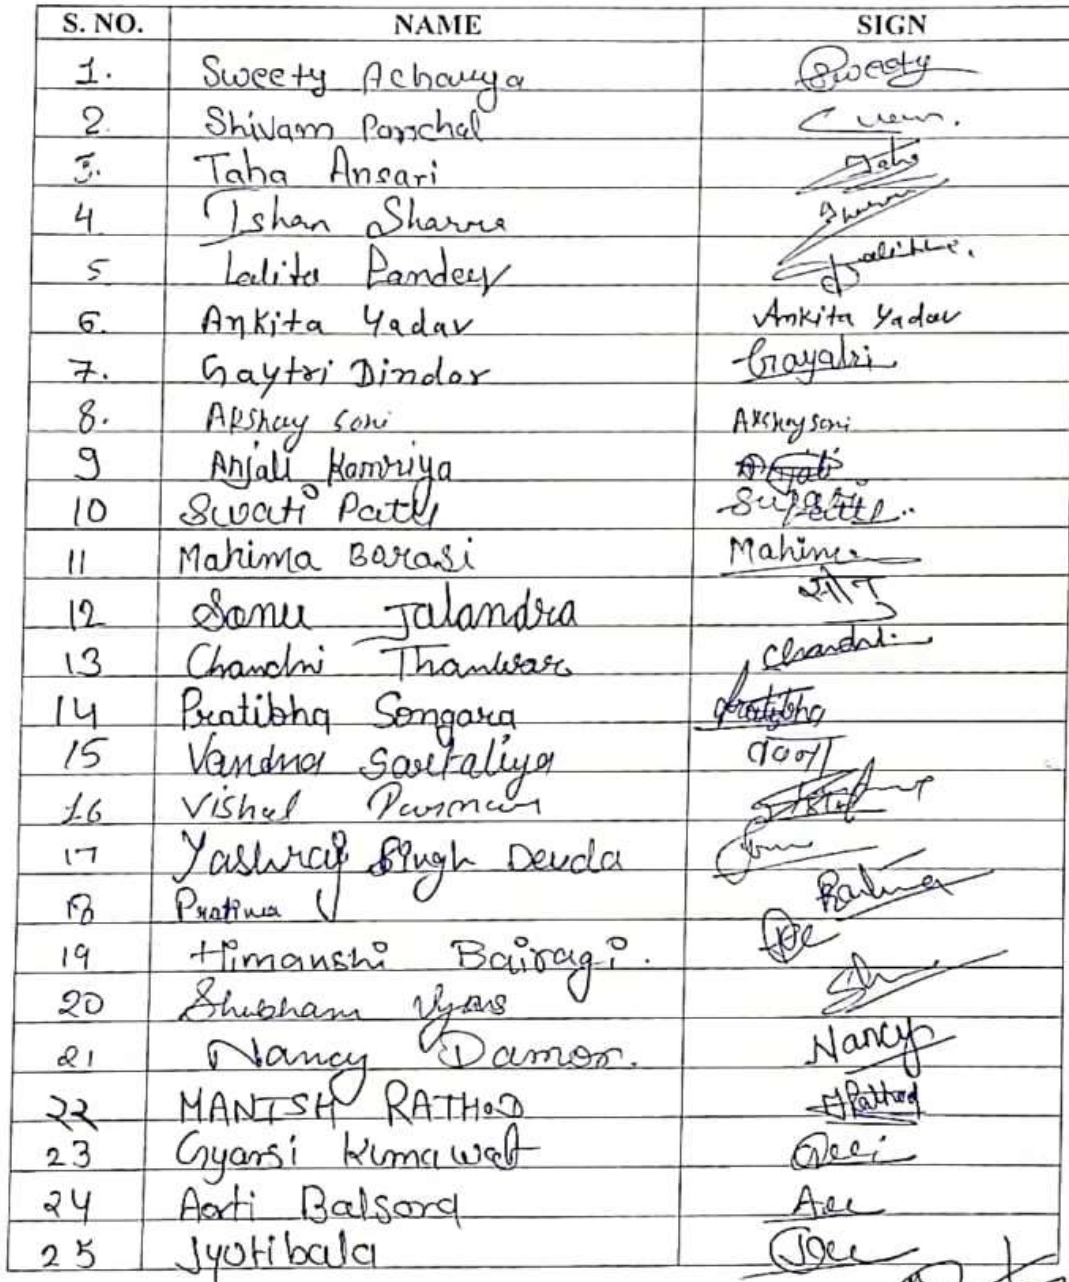 S. NO. NAME SIGN
1. Sweety Acharya Sweety
2. Shivam Panchal
3. Taha Ansari Taha
4 Ishan Sharma
5 Lalita Pandey Lalita
6. Ankita Yadav Ankita Yadav
7. Gaytri Dindor Gayatri
8. Akshay soni Akshay soni
9 Anjali Kamriya Anjali
10 Swati Patel
11 Mahima Barasi Mahima
12 Sonu Jalandra सोनु
13 Chandni Thanwar Chandni
14 Pratibha Songara Pratibha
15 Vandna Sartaliya
16 Vishal Parmar
17 Yashraj Singh Deuda
18 Pratima Pratima
19 Himanshi Bairagi.
20 Shubham Vyas
21 Nancy Damor. Nancy
22 MANISH RATHOD Rathod
23 Gyarsi Kumawat
24 Aarti Balsora
25 Jyotibala